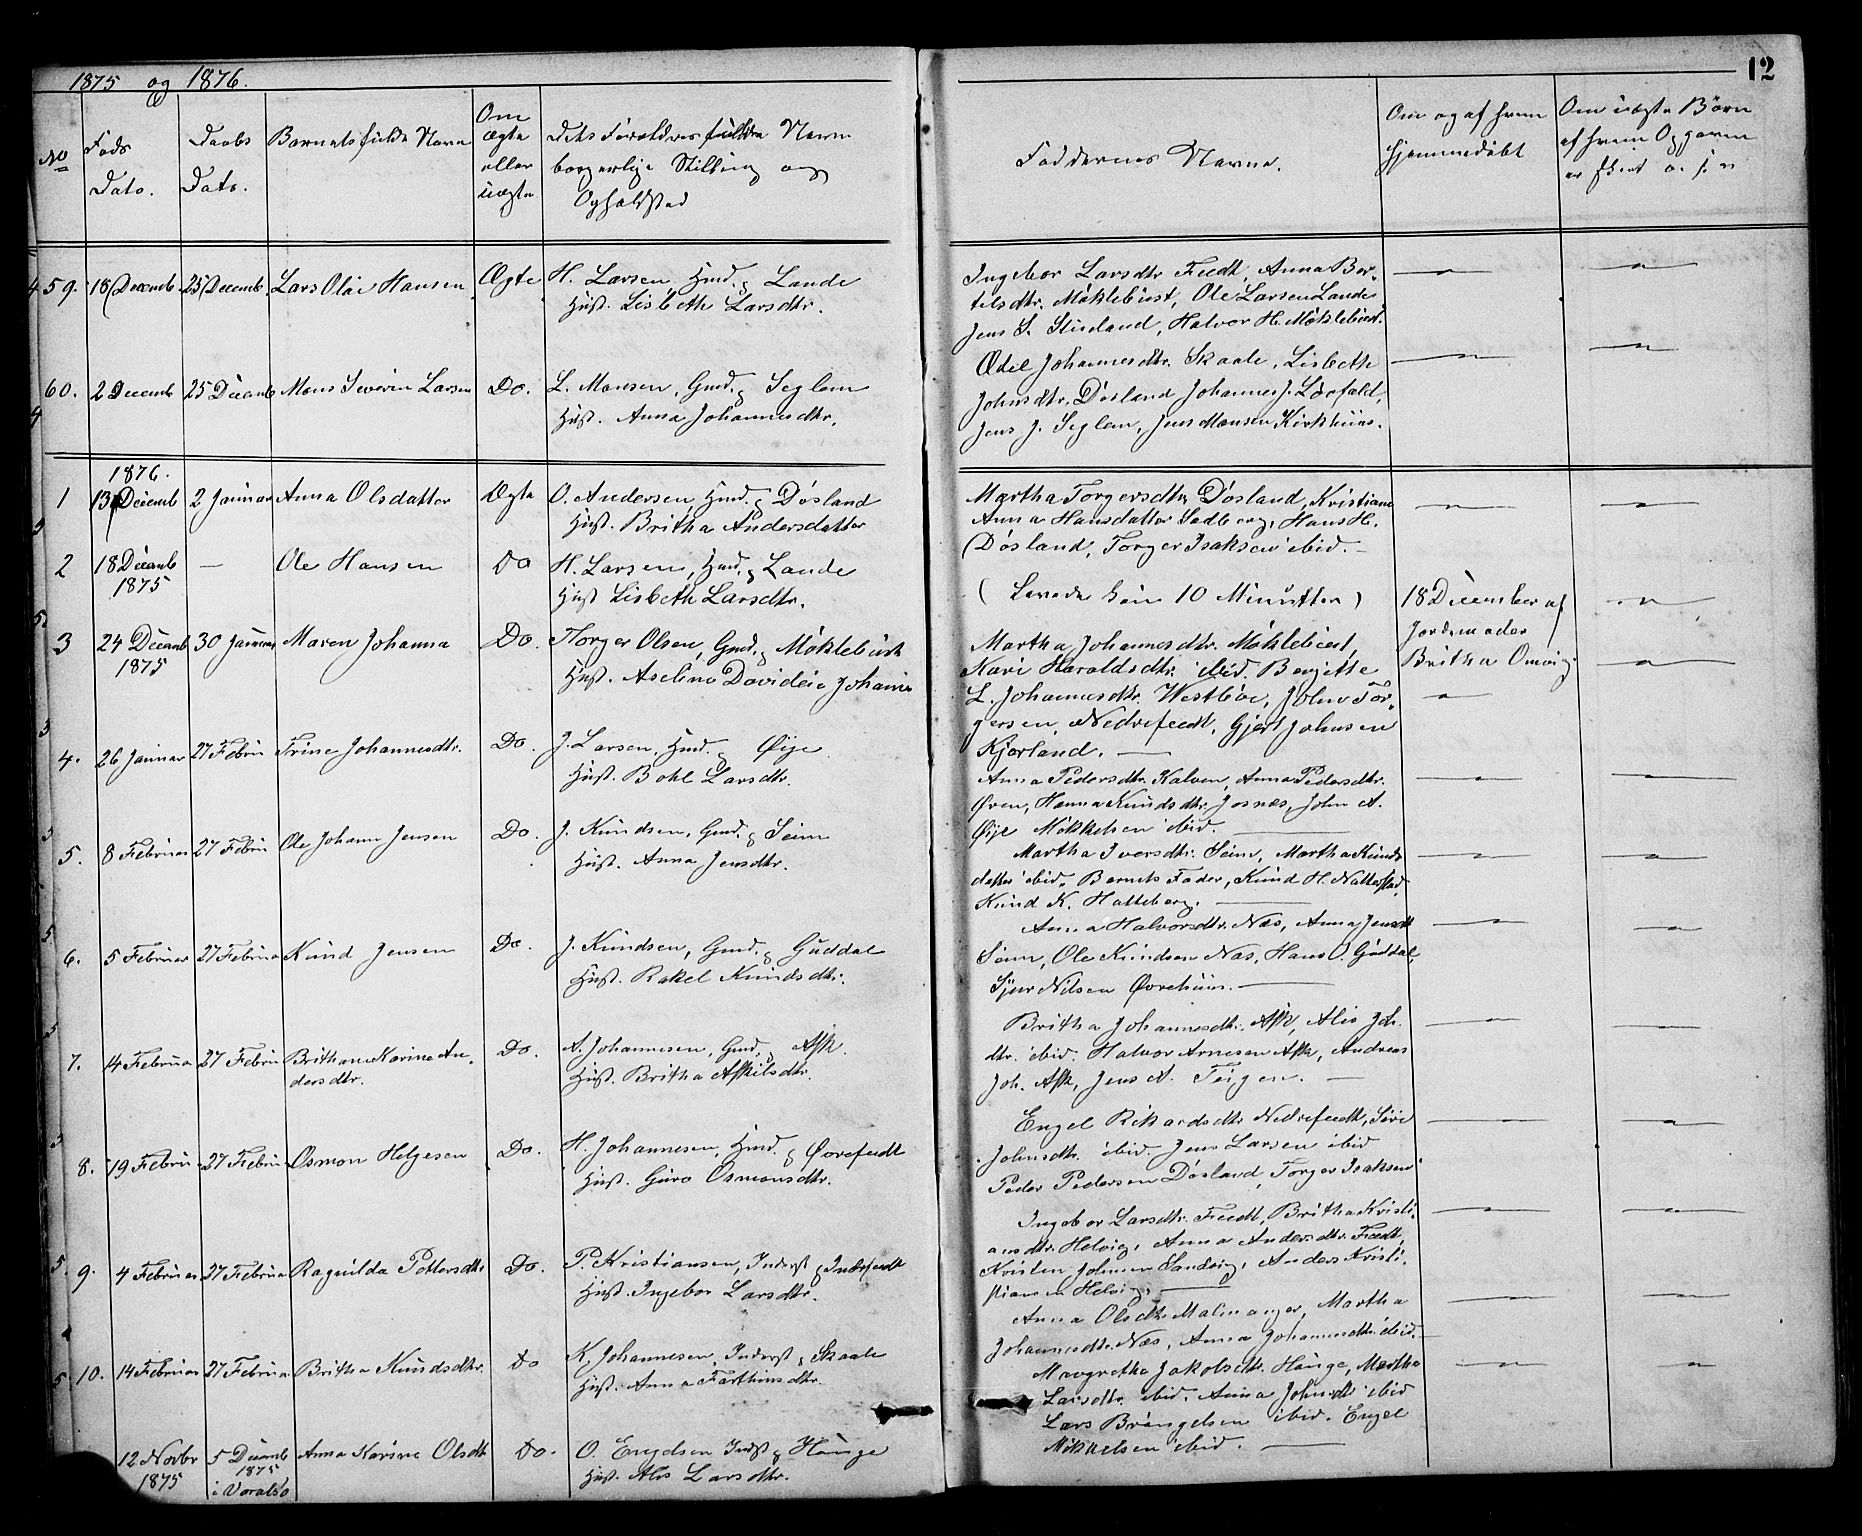 1875 og 1876.
12
No
Føds
Dato.
Daabs
Dato.
Barnets fulde Navn
Om
ægte
eller
uægte
Dets Forældres fulde Navn
borgerlige Stilling og
Opholdsted
Faddernes Navne.
Om og af hvem
hjemmedøbt
Om uægte Børn
af hvem Opgaven
er skeet
59. 18 Decemb. 25 Decemb. Lars Olai Hansen Ægte H. Larsen, Hmd. Lande
Hust. Lisbeth Larsdtr.
Ingebor Larsdtr. Feedt, Anna Ber-
telsdtr. Møklebust, Ole Larsen Lande
Jens S. Stueland, Halvor H. Møklebust.
60. 2 Decemb 25 Decemb Mons Severin Larsen Do. L. Monsen, Gmd. Seglem
Hust. Anna Johannesdtr.
Ædel Johannesdtr. Skaale, Lisbeth
Johnsdtr. Døsland Johannes J. Løvfald,
Jens J. Seglem, Jens Monsen Kirkhuus.
1876.
1 13 Decemb 2 Januar Anna Olsdatter Ægte O. Andersen, Hmd. Døsland
Hust. Britha Andersdatter
Martha Torgersdtr. Døsland, Kristiane
Anna Hansdatter Sedberg, Hans H.
Døsland, Torger Isaksen ibid.
2 18 Decemb — Ole Hansen Do H. Larsen, Hmd. Lande
1875 Hust Lisbeth Larsdtr.
(Levede kun 10 Minutter)
18 December af
Jordemoder
Britha Omvig
3 24 Decemb 30 Januar Maren Johanna Do. Torger Olsen, Gmd. Møklebust
1875 Hust. Aseline Davideia Johanns
Martha Johannesdtr. Møklebust,
Kari Haraldsdtr. ibid. Bergitte
L. Johannesdtr. Westbøe, John Tor-
gersen, Nedrefeedt, Gjert Johnsen
Kjerland.
4. 26 Januar 27 Febru Trine Johannesdtr. Do. J. Larsen, Hmd. Øije
Hust. Bohl Larsdtr.
Anna Pedersdtr. Kalven, Anna Pedersdtr.
Øven, Hanna Knudsdtr. Josnæs, John A.
Øije Mikkelsen ibid.
5. 8 Februar 27 Febru Ole Johann Jensen Do. J. Knudsen, Gmd. Seim
Hust. Anna Jensdtr.
Martha Iversdtr. Seim, Martha Knuds
datter ibid. Barnets Fader, Knud H. Natterstad,
Knud K. Hatteberg.
6. 5 Februar 27 Februa Knud Jensen Do. J. Knudsen, Gmd. Guddal
Hust. Rakel Knudsdtr.
Anna Halvorsdtr. Næs, Anna Jensdtr
Seim, Ole Knudsen Næs, Hans O. Guddal,
Sjur Nilsen Øvrehuus.
7. 14 Februa 27 Febru Brithane Karine An-
dersdtr. Do. A. Johannesen, Gmd. Ask.
Hust. Britha Askilsdtr.
Britha Johannesdtr. Ask, Alis Joh.
dtr. ibid. Halvor Arnesen Ask, Andreas
Joh. Ask, Jens A. Teigen.
8. 19 Febru 27 Febru Osmon Helgesen Do. H. Johannesen, Hmd. Øvrefeedt
Hust. Guro Osmonsdtr.
Engel Rikardsdtr. Nedrefeedt, Siri
Johnsdtr. ibid. Jens Larsen ibid
Peder Pedersen Døsland, Torger Isaksen
9. 4 Februar 27 Februa Ragnilda Pettersdtr Do. P. Kristiansen, Inderst Indrefeedt
Hust. Ingebor Larsdtr.
Ingebor Larsdtr. Feedt, Britha Kristi-
ansdtr. Helvig, Anna Andersdtr. Feedt,
Kristen Johnsen Sandvig, Anders Kristi-
stiansen Helvig.
10. 14 Februar 27 Februa Britha Knudsdtr. Do K. Johannesen, Inderst Skaale
Hust. Anna Farthinsdtr.
Anna Olsdtr. Malmanger, Martha
Johannesdtr. Næs, Anna Johannesdtr. ibid.
12 Novbr 5 Decemb Anna Karine Olsdtr Do. O. Engelsen Indst Hauge
1875 1875 Hust. Alis Larsdtr.
i Voralsø
Margrethe Jakobsdtr. Hauge, Martha
Larsdtr. ibid. Anna Johnsdtr. ibid
Lars Brøngelsen ibid. Engel
Mikkelsen ibid.